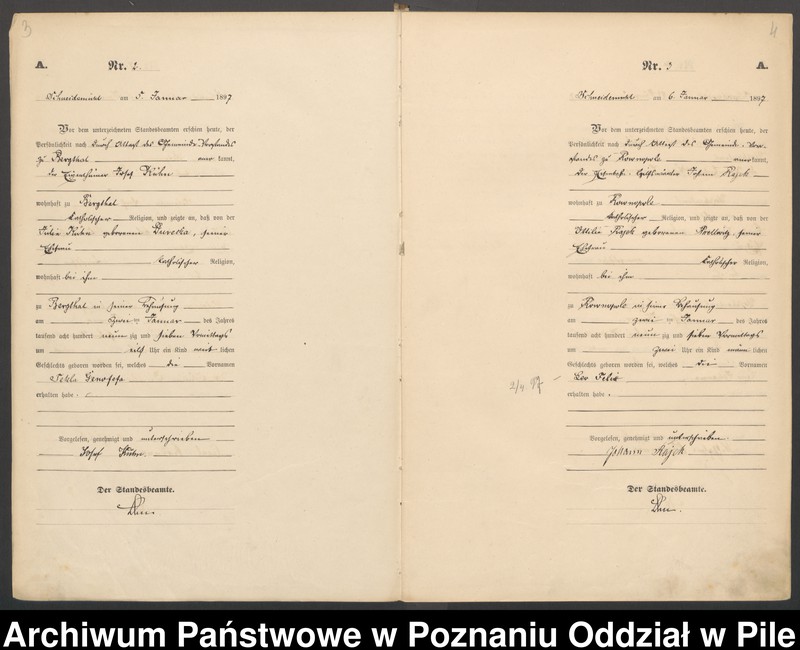 3
A.
Nr. 2.
Schneidemühl am 5. Januar 1897
Vor dem unterzeichneten Standesbeamten erschien heute, der
Persönlichkeit nach durch Attest des Gemeinde-Vorstandes
zu Bergthal anerkannt,
der Eigenthümer Josef Kühn
wohnhaft zu Bergthal
katholischer Religion, und zeigte an, daß von der
Kühn geborenen seiner
Ehefrau
katholischer Religion,
wohnhaft bei ihm
zu Bergthal in seiner Behausung
am zwei ten Januar des Jahres
tausend acht hundert neun zig und sieben Vormittags
um elf Uhr ein Kind weib lichen
Geschlechts geboren worden sei, welches die Vornamen
Tekla Genofefa
erhalten habe.
Vorgelesen, genehmigt und unterschrieben
Josef Kühn.
Der Standesbeamte.
4
Nr. 3
A.
Schneidemühl am 6. Januar 1897
Vor dem unterzeichneten Standesbeamten erschien heute, der
Persönlichkeit nach durch Attest des Gemeinde-Vor-
standes zu anerkannt,
der Johann Rajek
wohnhaft zu
katholischer Religion, und zeigte an, daß von der
Ottilie Rajek geborenen seiner
Ehefrau
katholischer Religion,
wohnhaft bei ihm
zu in seiner Behausung
am zwei ten Januar des Jahres
tausend acht hundert neun zig und sieben Vormittags
um zwei Uhr ein Kind männ lichen
Geschlechts geboren worden sei, welches die Vornamen
Leo Felix
erhalten habe.
Vorgelesen, genehmigt und unterschrieben.
Johann Rajek
Der Standesbeamte.
Archiwum Państwowe w Poznaniu Oddział w Pile